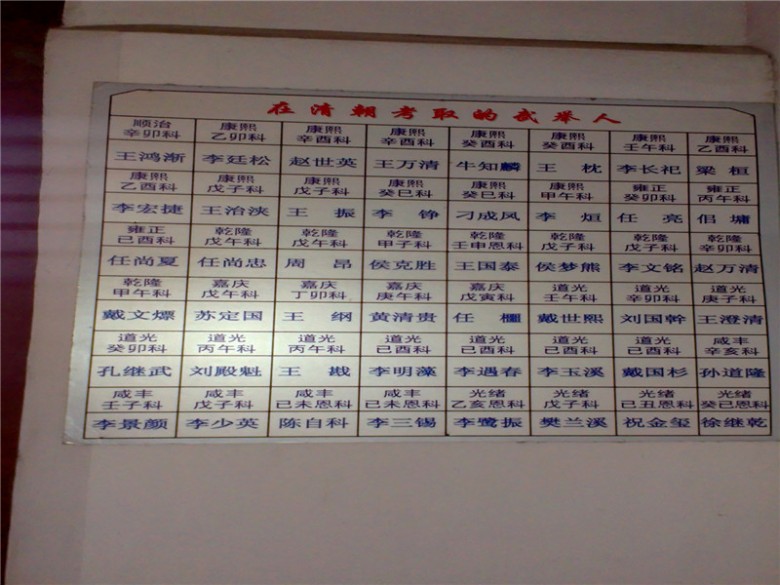 在清朝考取的武举人
顺治 康熙 康熙 康熙 康熙 康熙 康熙 康熙
辛卯科 乙卯科 辛酉科 辛酉科 癸酉科 癸酉科 壬午科 乙酉科
王鸿渐 李廷松 赵世英 王万清 牛知麟 王枕 李长祀 梁桓
康熙 康熙 康熙 康熙 康熙 康熙 雍正 雍正
乙酉科 戊子科 戊子科 癸巳科 癸巳科 甲午科 癸卯科 丙午科
李宏捷 王治浃 王振 李铮 刁成凤 李烜 任亮 侣墉
雍正 乾隆 乾隆 乾隆 乾隆 乾隆 乾隆 乾隆
已酉科 戊午科 戊午科 甲子科 壬申恩科 戊子科 戊子科 辛卯科
任尚夏 任尚忠 周昂 侯克胜 王国泰 侯梦熊 李文铭 赵万清
乾隆 嘉庆 嘉庆 嘉庆 嘉庆 道光 道光 道光
甲午科 戊午科 丁卯科 庚午科 戊寅科 壬午科 辛卯科 庚子科
戴文煙 苏定国 王纲 黄清贵 任 戴世熙 刘国幹 王澄清
道光 道光 道光 道光 道光 道光 道光 咸丰
癸卯科 丙午科 丙午科 已酉科 已酉科 已酉科 已酉科 辛亥科
孔继武 刘殿魁 王戡 李明藻 李遇春 李玉溪 戴国杉 孙道隆
咸丰 咸丰 咸丰 咸丰 光绪 光绪 光绪 光绪
壬子科 戊子科 已未恩科 已未恩科 乙亥恩科 戊子科 已丑恩科 癸巳恩科
李景颜 李少英 陈自科 李三锡 李鹭振 樊兰溪 祝金玺 徐继乾